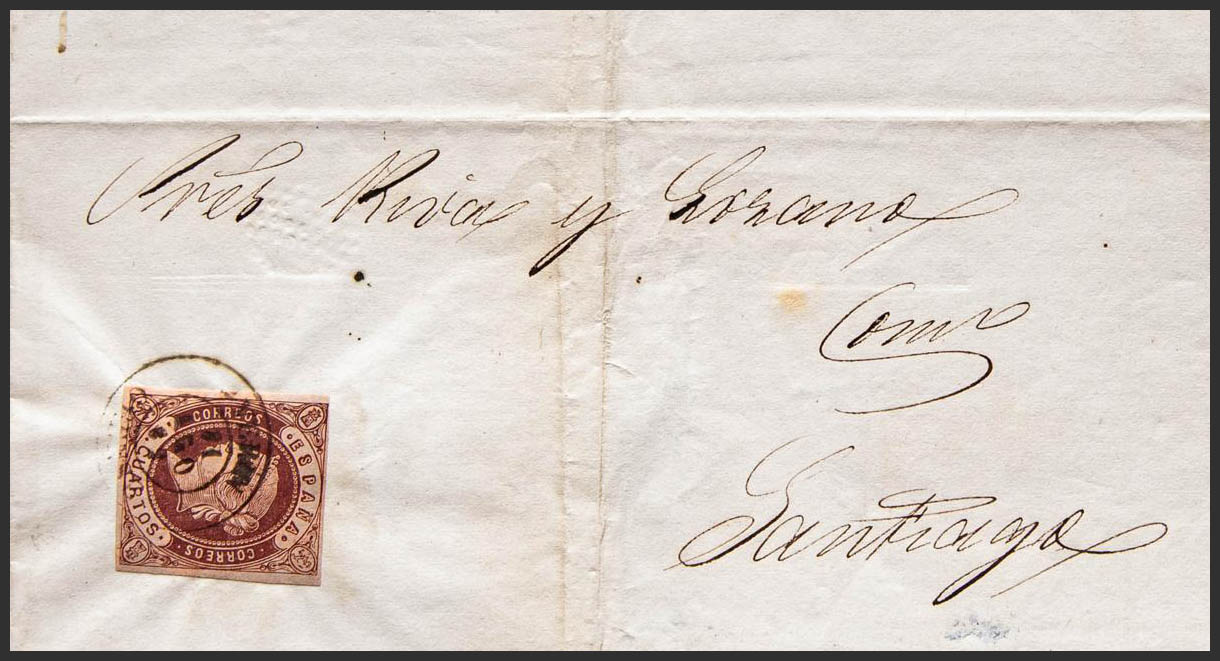 Sres Riva y Lozano
Como
Santiago
CORREOS
ESPAÑA
CORREOS
4 CUARTOS